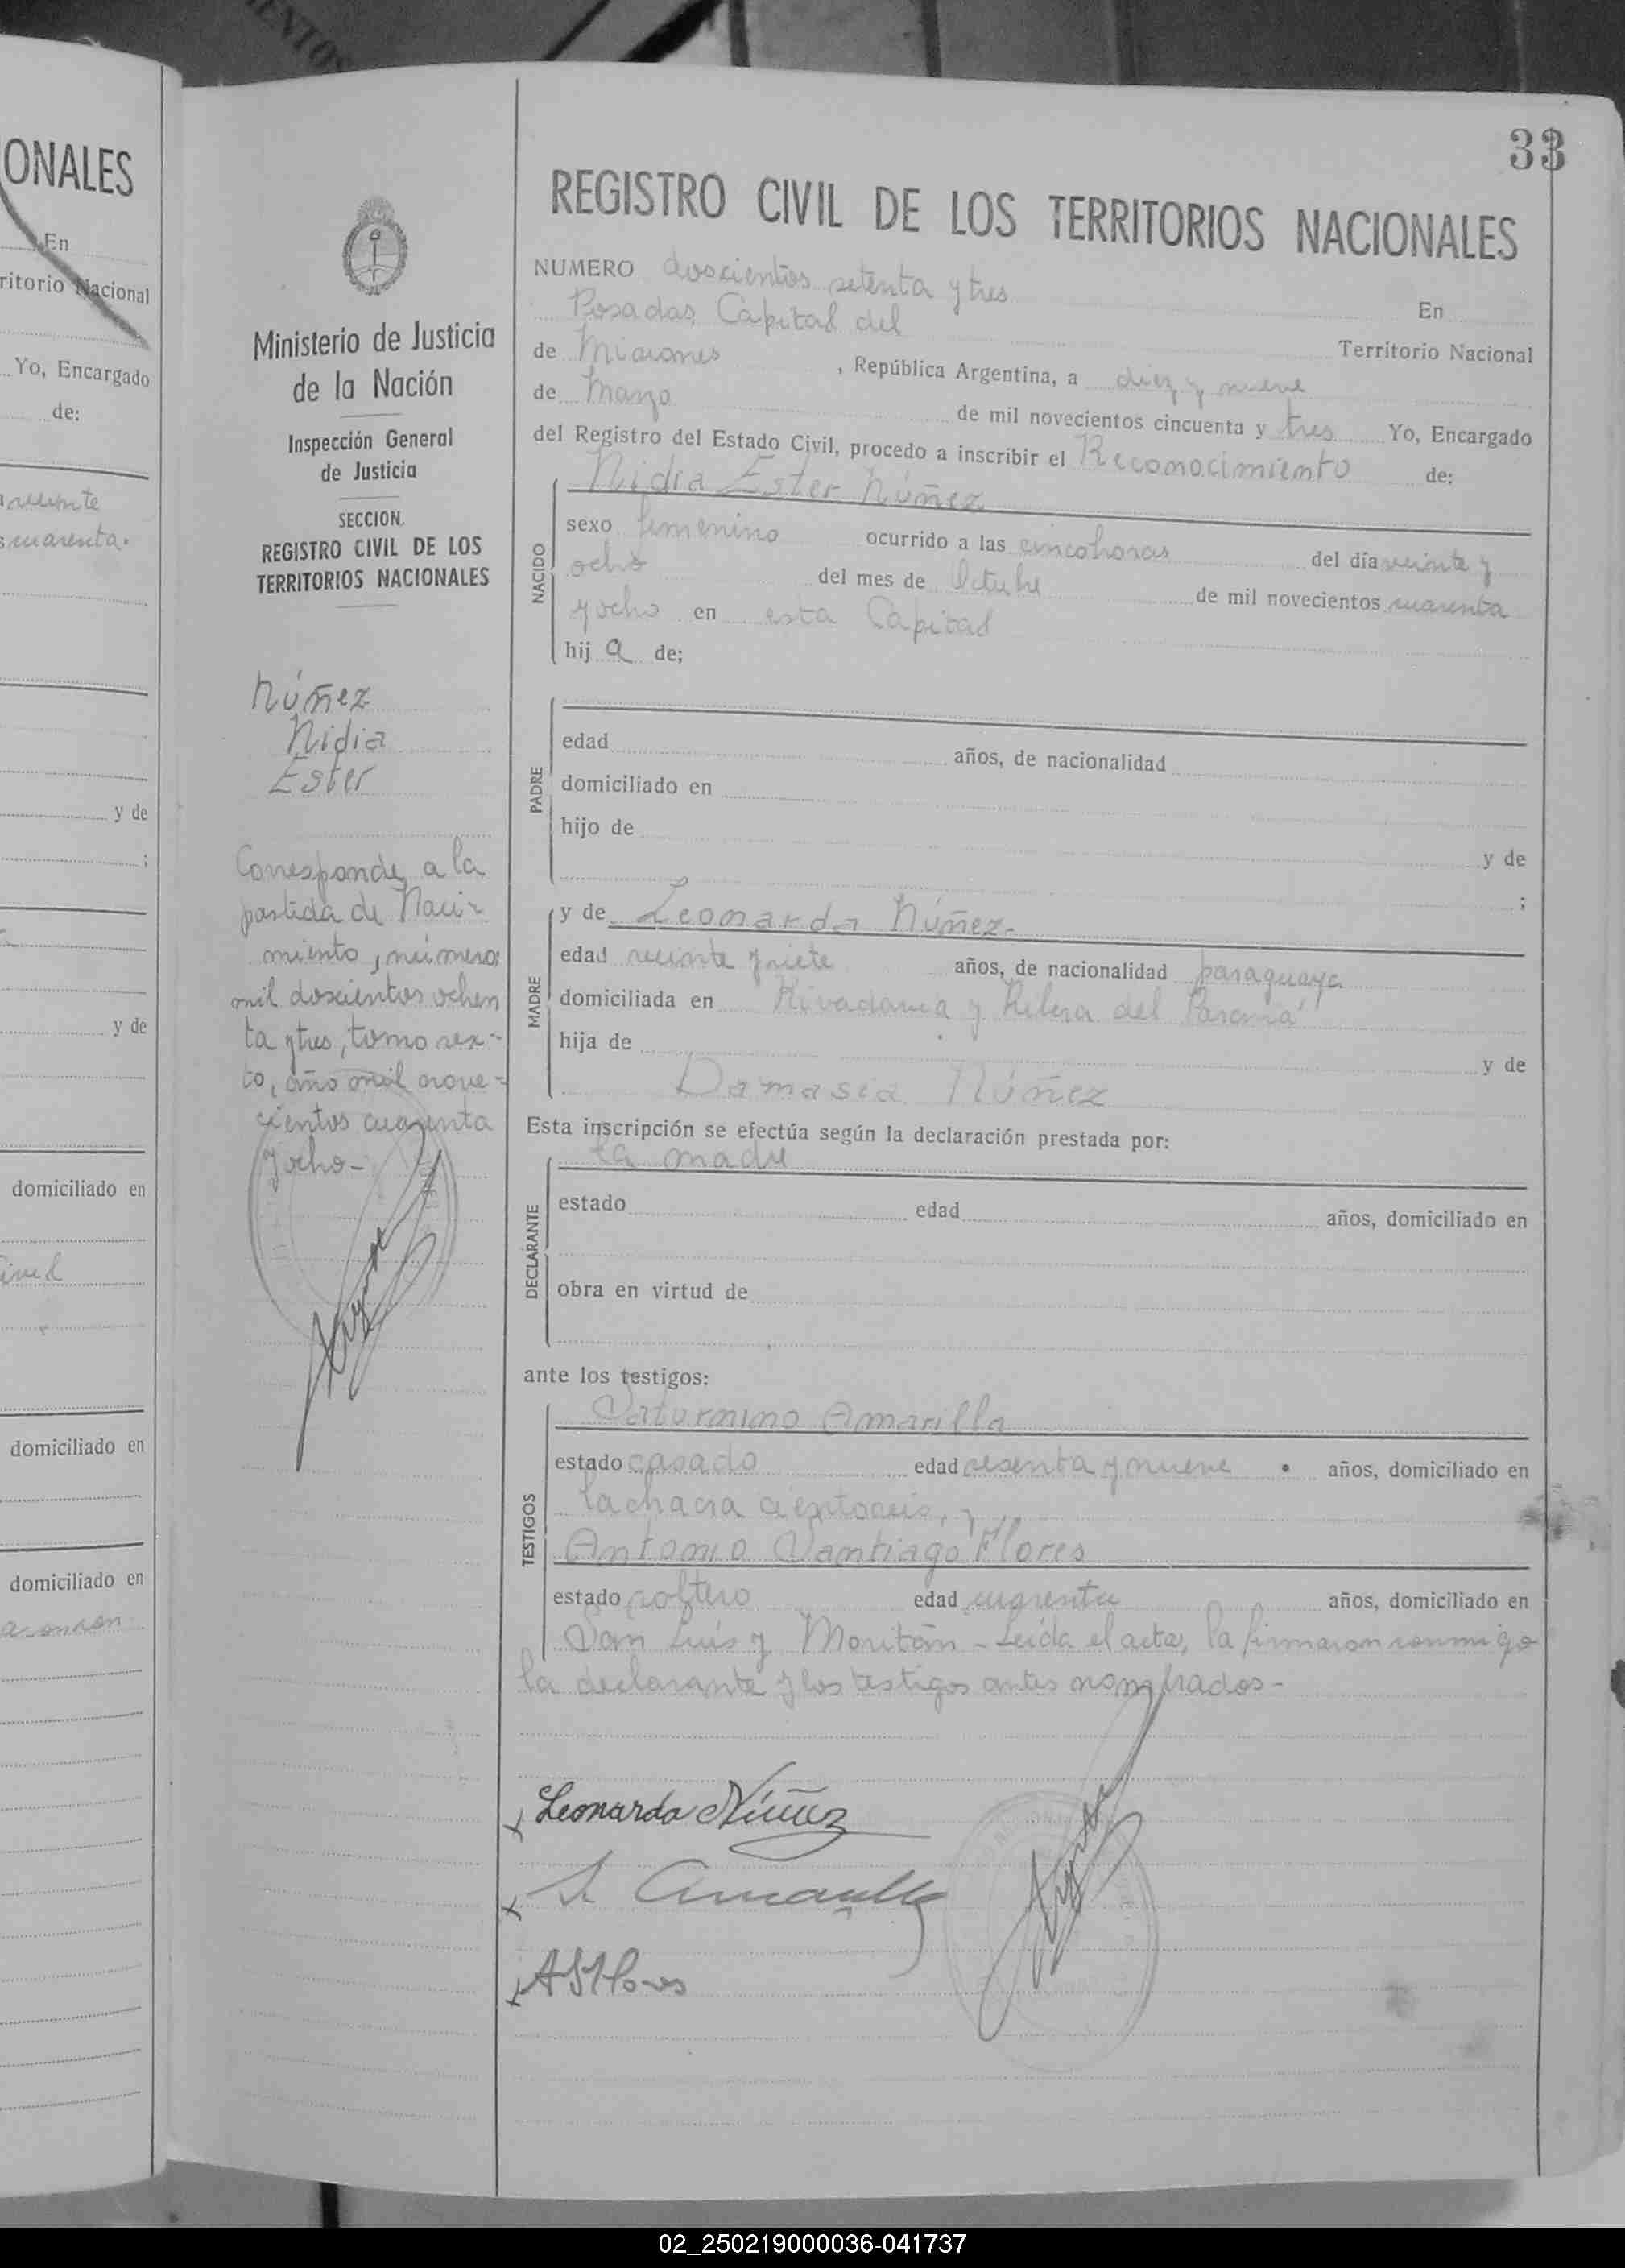 ENTOS
ONALES
En
ritorio Nacional
Yo, Encargado
de:
cuarenta.
y de
;
y de
domiciliado en
domiciliado en
domiciliado en
Ministerio de Justicia
de la Nación
Inspección General
de Justicia
SECCION
REGISTRO CIVIL DE LOS
TERRITORIOS NACIONALES
Núñez
Nidia
Ester
Corresponde a la
partida de Naci-
miento, número:
mil doscientos ochen
ta y tres, tomo sex-
to, año mil nove-
cientos cuarenta
y ocho-
33
REGISTRO CIVIL DE LOS TERRITORIOS NACIONALES
NUMERO doscientos setenta y tres En
Posadas, Capital del Territorio Nacional
de Misiones, República Argentina, a diez y nueve
de Marzo de mil novecientos cincuenta y tres Yo, Encargado
del Registro del Estado Civil, procedo a inscribir el Reconocimiento de:
Nidia Ester Núñez
NACIDO
sexo femenino ocurrido a las cinco horas del día veinte y
ocho del mes de Octubre de mil novecientos cuarenta
y ocho en esta Capital
hij a de;
PADRE
edad años, de nacionalidad
domiciliado en
hijo de y de
;
MADRE
y de Leonarda Núñez-
edad veinte y siete años, de nacionalidad paraguaya
domiciliada en Rivadavia y Ribera del Paraná
hija de y de
Damasia Núñez
Esta inscripción se efectúa según la declaración prestada por:
la madre
DECLARANTE
estado edad años, domiciliado en
obra en virtud de
ante los testigos:
TESTIGOS
Saturnino Amarilla
estado casado edad sesenta y nueve años, domiciliado en
la chacra ciento seis, y
Antonio Santiago Flores
estado soltero edad cuarenta años, domiciliado en
San Luis y Moritán - Leída el acta, la firmaron conmigo
la declarante y los testigos antes nombrados-
x Leonarda Núñez
x S. Amarilla
x ASFlores
02_250219000036-041737